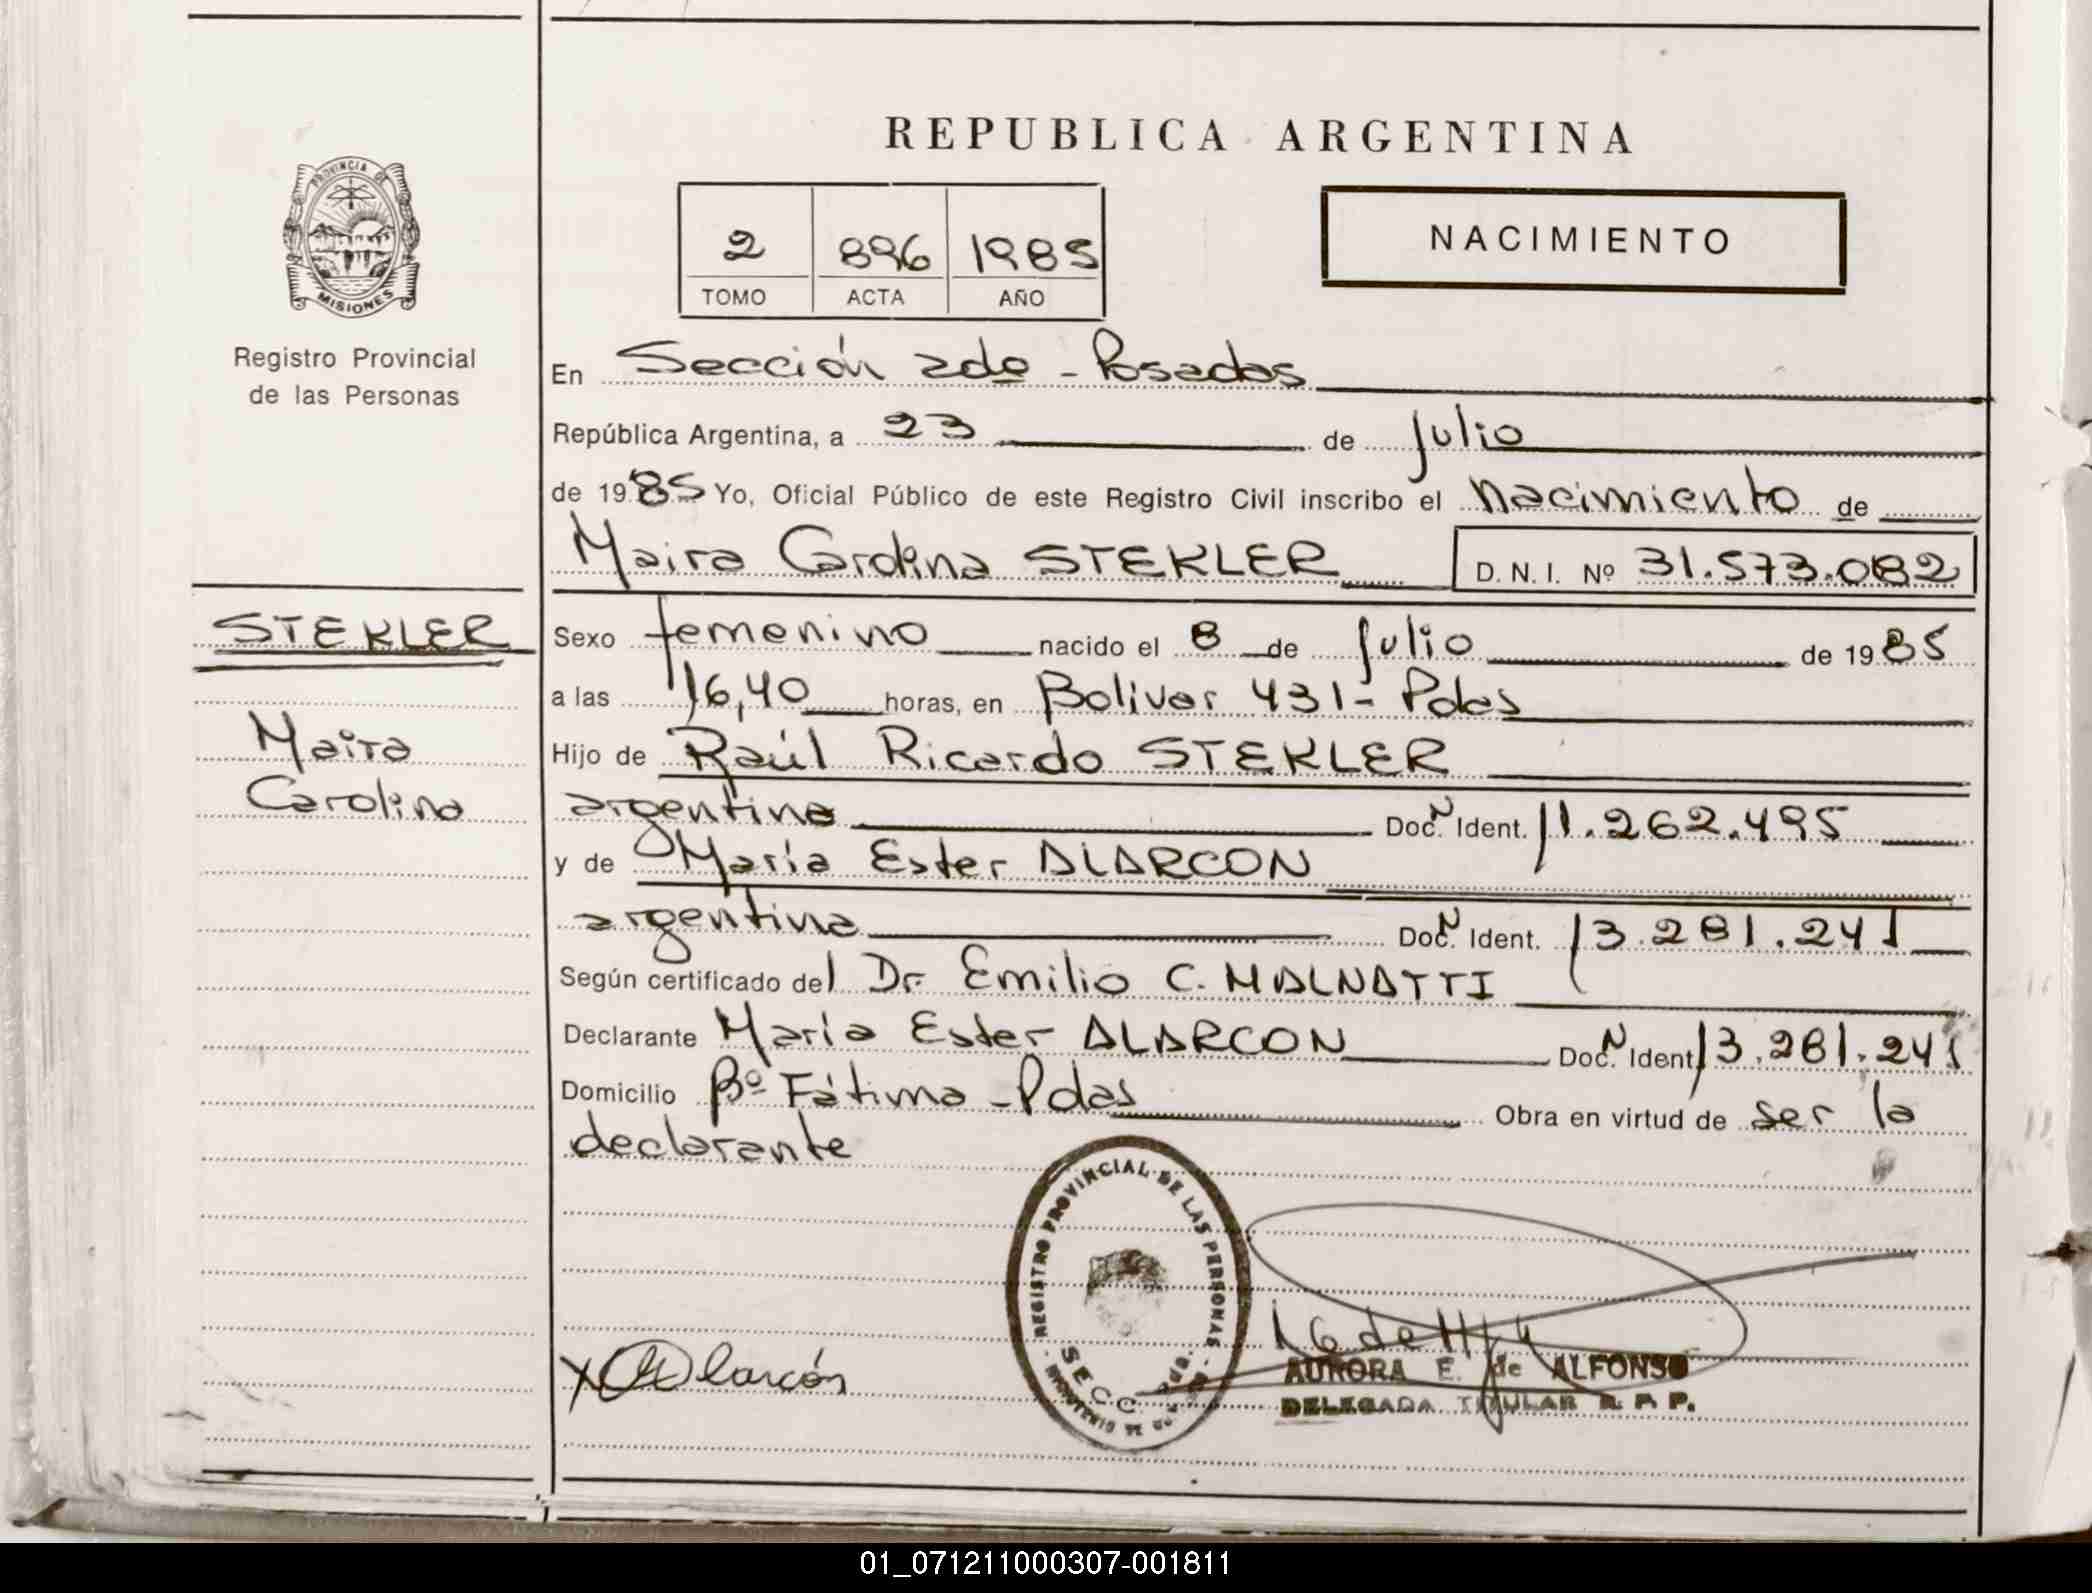 REPUBLICA ARGENTINA
PROVINCIA DE
MISIONES
Registro Provincial
de las Personas
2 896 1985
TOMO ACTA AÑO
NACIMIENTO
En Sección 2da - Posadas
República Argentina, a 23 de Julio
de 1985 Yo, Oficial Público de este Registro Civil inscribo el Nacimiento de
Maira Carolina STEKLER D. N. I. Nº 31.573.082
STEKLER
Maira
Carolina
Sexo femenino nacido el 8 de Julio de 1985
a las 16,40 horas, en Bolivar 431- Pdas
Hijo de Raúl Ricardo STEKLER
argentino Doc. N Ident. 11.262.495
y de María Ester ALARCON
argentina Doc. N Ident. 13.281.241
Según certificado del Dr. Emilio C. MALNATTI
Declarante María Ester ALARCON Doc. N Ident. 13.281.241
Domicilio Bº Fátima - Pdas Obra en virtud de ser la
declarante
REGISTRO PROVINCIAL DE LAS PERSONAS
SECC.
X Alarcón
AURORA E. de ALFONSO
DELEGADA TITULAR R. P. P.
01_071211000307-001811